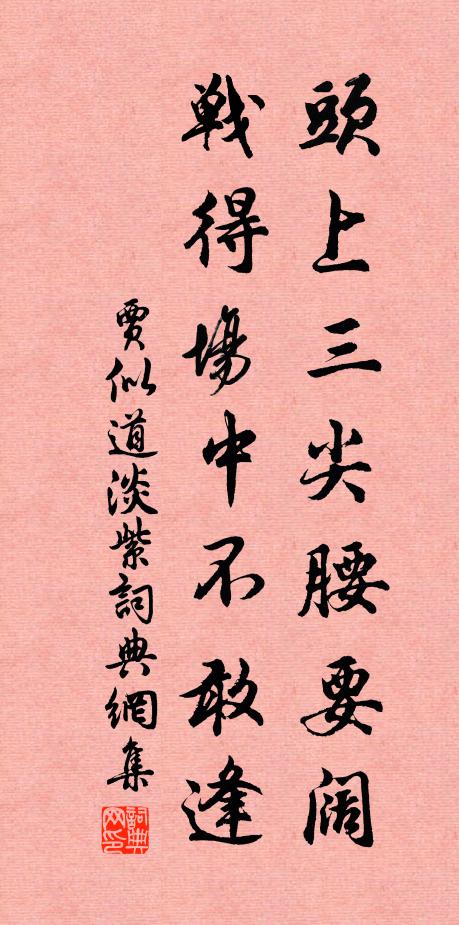 頭上三尖腰要阔
戦得場中不敢逢
賈似道淡紫詞典網集
詞典网印